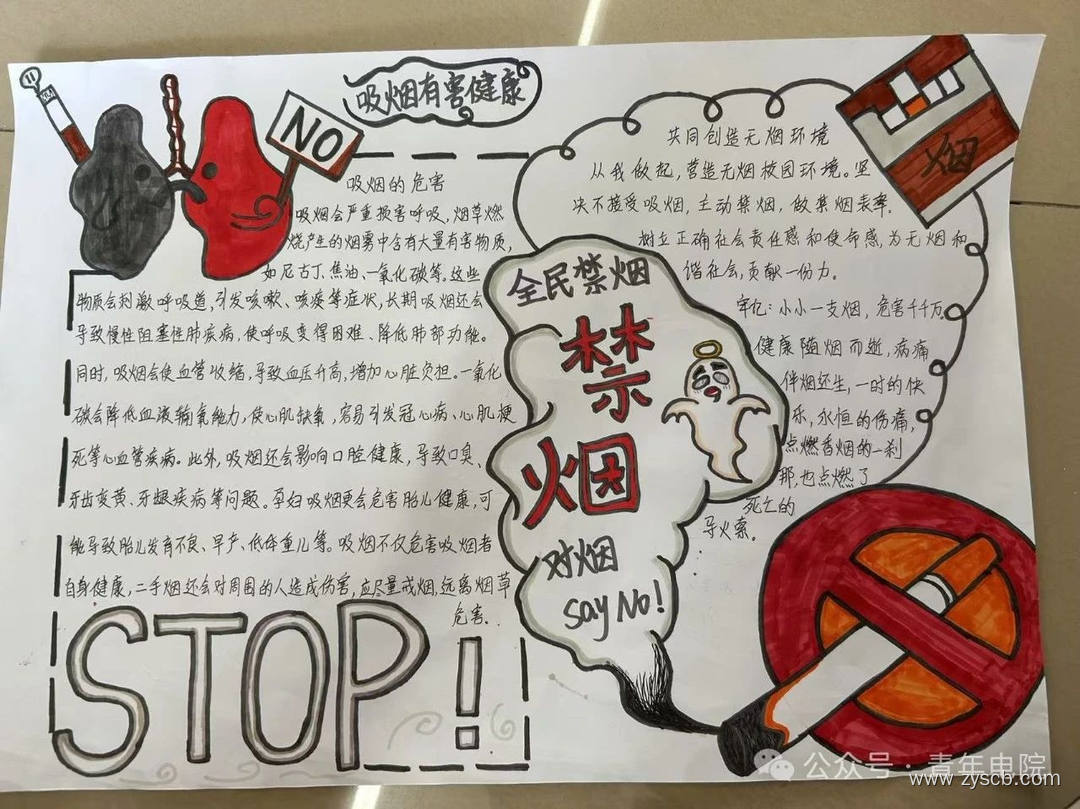 吸烟有害健康
NO
吸烟的危害
吸烟会严重损害呼吸,烟草燃
烧产生的烟雾中含有大量有害物质,
如尼古丁、焦油、一氧化碳等。这些
物质会刺激呼吸道,引发咳嗽、咳痰等症状,长期吸烟还会
导致慢性阻塞性肺疾病,使呼吸变得困难、降低肺部功能。
同时,吸烟会使血管收缩,导致血压升高,增加心脏负担。一氧化
碳会降低血液输氧能力,使心肌缺氧,容易引发冠心病、心肌梗
死等心血管疾病。此外,吸烟还会影响口腔健康,导致口臭、
牙齿变黄、牙龈疾病等问题。孕妇吸烟更会危害胎儿健康,可
能导致胎儿发育不良、早产、低体重儿等。吸烟不仅危害吸烟者
自身健康,二手烟还会对周围的人造成伤害,应尽量戒烟,远离烟草
危害.
STOP!
全民禁烟
禁
烟
对烟
say No!
共同创造无烟环境
从我做起,营造无烟校园环境。坚
决不接受吸烟,主动禁烟,做禁烟表率.
树立正确社会责任感和使命感,为无烟和
谐社会,贡献一份力.
牢记:小小一支烟,危害千千万.
健康随烟而逝,病痛
伴烟还生,一时的快
乐,永恒的伤痛,
点燃香烟的一刹
那,也点燃了
死亡的
导火索.
烟
公众号·青年电院
www.zyscb.com